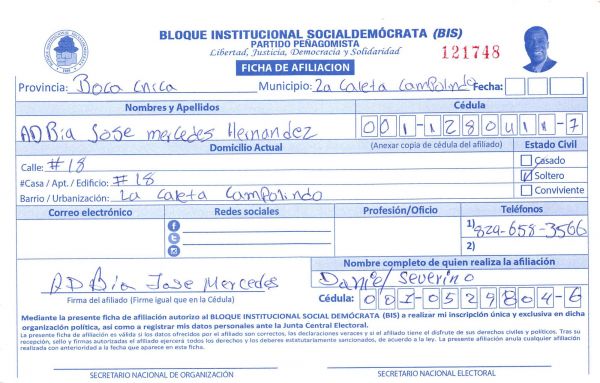 BLOQUE INSTITUCIONAL SOCIALDEMÓCRATA (BIS)
PARTIDO PEÑAGOMISTA
Libertad, Justicia, Democracia y Solidaridad
121748
FICHA DE AFILIACION
Provincia: Boca chica Municipio: La Caleta Campolindo Fecha:
Nombres y Apellidos Cédula
ADBia Jose mercedes Hernandez 001-1280411-7
Domicilio Actual (Anexar copia de cédula del afiliado) Estado Civil
Calle: #18 Casado
#Casa / Apt. / Edificio: #18 Soltero
Barrio / Urbanización: La Caleta Campolindo Conviviente
Correo electrónico Redes sociales Profesión/Oficio Teléfonos
1) 829-658-3566
2)
Nombre completo de quien realiza la afiliación
ADBia Jose Mercedes Daniel Severino
Firma del afiliado (Firme igual que en la Cédula) Cédula: 001-0529804-6
Mediante la presente ficha de afiliación autorizo al BLOQUE INSTITUCIONAL SOCIAL DEMÓCRATA (BIS) a realizar mi inscripción única y exclusiva en dicha
organización política, así como a registrar mis datos personales ante la Junta Central Electoral.
La presente ficha de afiliación es válida si los datos ofrecidos por el afiliado son correctos, las declaraciones veraces y si el afiliado tiene el disfrute de sus derechos civiles y políticos. Tras su
recepción, sello y firmas autorizadas el afiliado ejercerá todos los derechos y los deberes estatutariamente sancionados, de acuerdo a la ley. La presente afiliación anula cualquier afiliación
realizada con anterioridad a la fecha que aparece en esta ficha.
SECRETARIO NACIONAL DE ORGANIZACIÓN SECRETARIO NACIONAL ELECTORAL